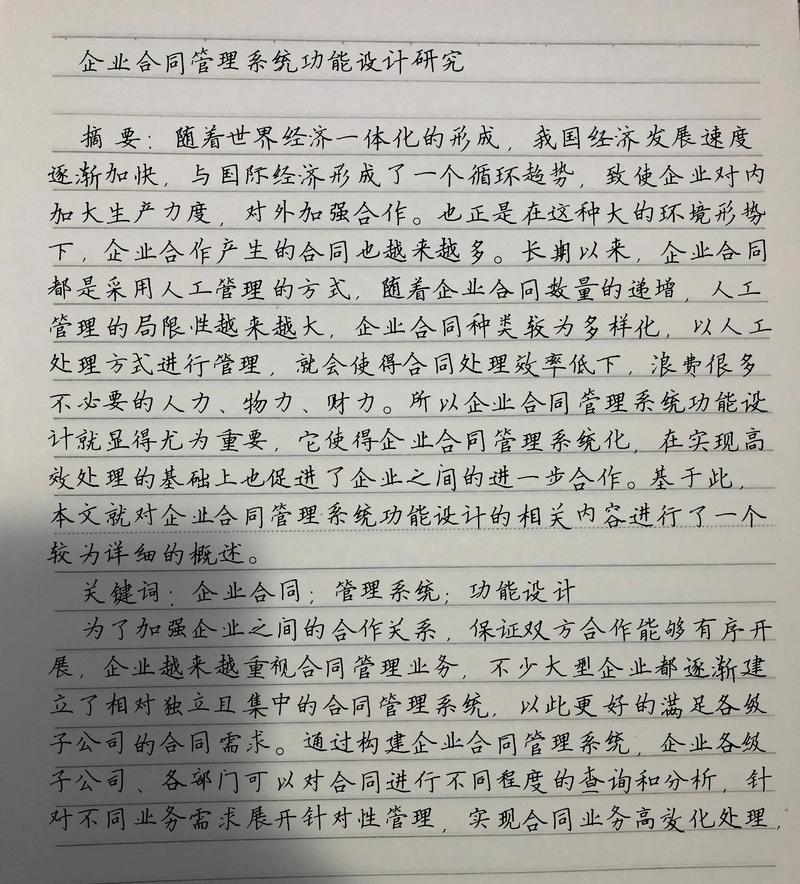 企业合同管理系统功能设计研究
摘要：随着世界经济一体化的形成，我国经济发展速度
逐渐加快，与国际经济形成了一个循环趋势，致使企业对内
加大生产力度，对外加强合作。也正是在这种大的环境形势
下，企业合作产生的合同也越来越多。长期以来，企业合同
都是采用人工管理的方式，随着企业合同数量的递增，人工
管理的局限性越来越大，企业合同种类较为多样化，以人工
处理方式进行管理，就会使得合同处理效率低下，浪费很多
不必要的人力、物力、财力。所以企业合同管理系统功能设
计就显得尤为重要，它使得企业合同管理系统化，在实现高
效处理的基础上也促进了企业之间的进一步合作。基于此，
本文就对企业合同管理系统功能设计的相关内容进行了一个
较为详细的概述。
关键词：企业合同；管理系统；功能设计
为了加强企业之间的合作关系，保证双方合作能够有序开
展，企业越来越重视合同管理业务，不少大型企业都逐渐建
立了相对独立且集中的合同管理系统，以此更好的满足各级
子公司的合同需求。通过构建企业合同管理系统，企业各级
子公司、各部门可以对合同进行不同程度的查询和分析，针
对不同业务需求展开针对性管理，实现合同业务高效化处理，